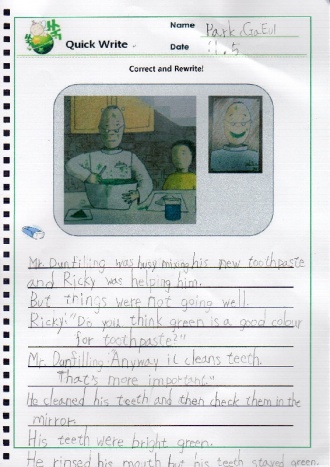 Quick Write
Name Park, GaEul
Date 11.5
Correct and Rewrite!
Mr. Dunfilling was busy mixing his new toothpaste
and Ricky was helping him.
But things were not going well.
Ricky: "Do you think green is a good colour
for toothpaste?"
Mr. Dunfilling: Anyway it cleans teeth.
That's more important."
He cleaned his teeth and then check them in the
mirror.
His teeth were bright green.
He rinsed his mouth but his teeth stayed green.